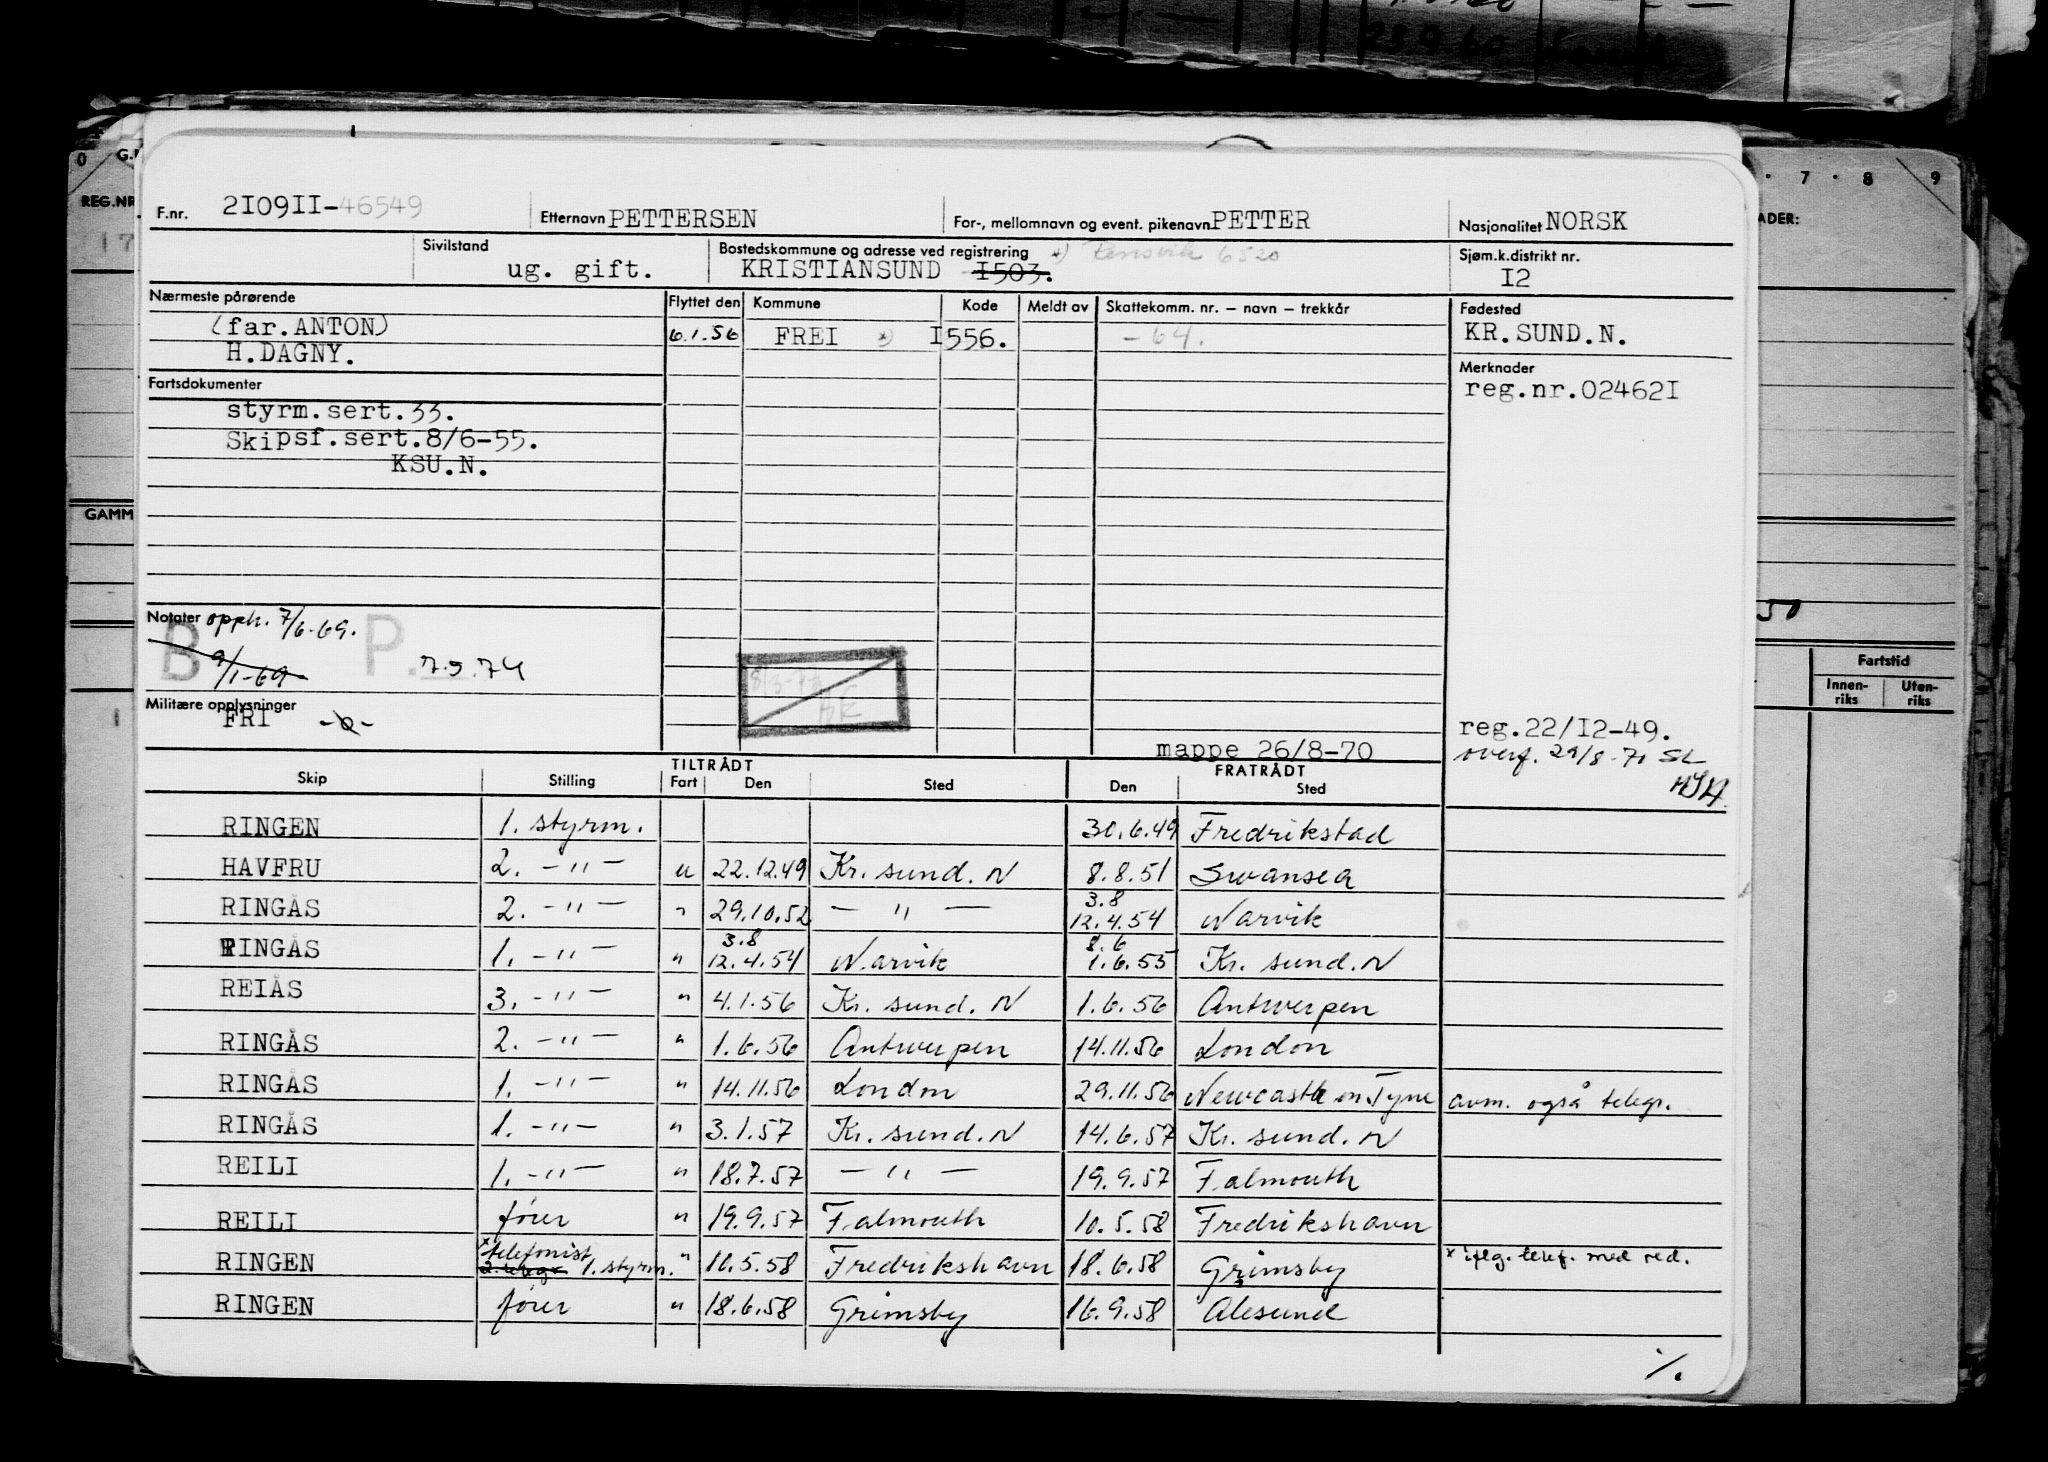 23.9.60
0 G.
REG.NR.
7 · 8 9
ADER:
GAMM
50
Fartstid
Innen-riks Uten-riks
F.nr. 2I09II-46549 Etternavn PETTERSEN For-, mellomnavn og event. pikenavn PETTER Nasjonalitet NORSK
Sivilstand ug. gift. Bostedskommune og adresse ved registrering *) Rensvik 6520 Sjøm.k.distrikt nr.
KRISTIANSUND I503. I2
Nærmeste pårørende Flyttet den Kommune Kode Meldt av Skattekomm. nr. – navn – trekkår Fødested
(far.ANTON) 6.1.56 FREI *) I556. -64. KR.SUND.N.
H.DAGNY.
Fartsdokumenter Merknader
styrm.sert.33. reg.nr.02462I
Skipsf.sert.8/6-55.
KSU.N.
Notater opph. 7/6-69.
B 9/1-69 P. 7.5.74
Militære opplysninger
FRI
reg.22/I2-49.
mappe 26/8-70 overf. 29/8-71 SL
TILTRÅDT FRATRÅDT
Skip Stilling Fart Den Sted Den Sted
RINGEN 1. styrm. 30.6.49 Fredrikstad
HAVFRU 2. -"- u 22.12.49 Kr. sund. N 8.8.51 Swansea
RINGÅS 2. -"- " 29.10.52 - " - 3.8 12.4.54 Narvik
RINGÅS 1. -"- " 3.8 12.4.54 Narvik 8.6 1.6.55 Kr. sund. N
REIÅS 3. -"- " 4.1.56 Kr. sund. N 1.6.56 Antwerpen
RINGÅS 2. -"- " 1.6.56 Antwerpen 14.11.56 London
RINGÅS 1. -"- " 14.11.56 London 29.11.56 Newcastle on Tyne avm. også telegr.
RINGÅS 1. -"- " 3.1.57 Kr. sund. N 14.6.57 Kr. sund. N
REILI 1. -"- " 18.7.57 - " - 19.9.57 Falmouth
REILI fører " 19.9.57 Falmouth 10.5.58 Fredrikshavn
RINGEN x telefonist 2. telegr 1. styrm. " 11.5.58 Fredrikshavn 18.6.58 Grimsby x iflg. telef. med red.
RINGEN fører " 18.6.58 Grimsby 16.9.58 Alesund
./.